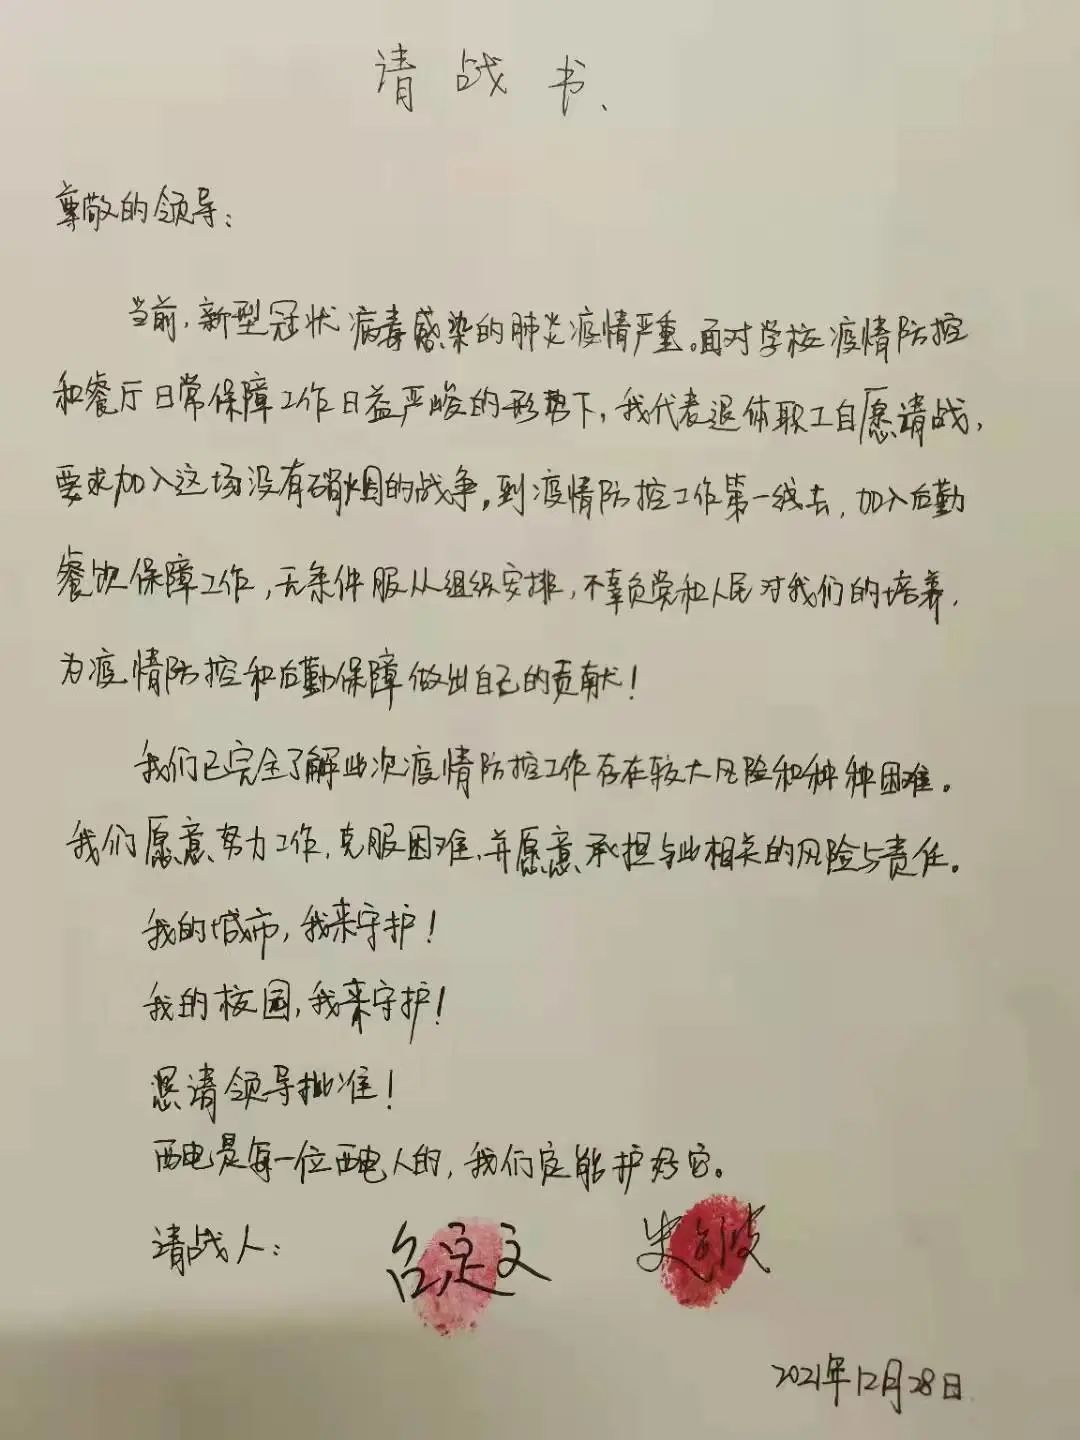 请战书、
尊敬的领导：
当前，新型冠状病毒感染的肺炎疫情严重。面对学校疫情防控
和餐厅日常保障工作日益严峻的形势下，我代表退休职工自愿请战，
要求加入这场没有硝烟的战争，到疫情防控工作第一线去，加入后勤
餐饮保障工作，无条件服从组织安排，不辜负党和人民对我们的培养，
为疫情防控和后勤保障做出自己的贡献！
我们已完全了解此次疫情防控工作存在较大风险和种种困难。
我们愿意努力工作，克服困难，并愿意承担与此相关的风险与责任。
我的城市，我来守护！
我的校园，我来守护！
恳请领导批准！
西电是每一位西电人的，我们定能护好它。
请战人：
2021年12月28日